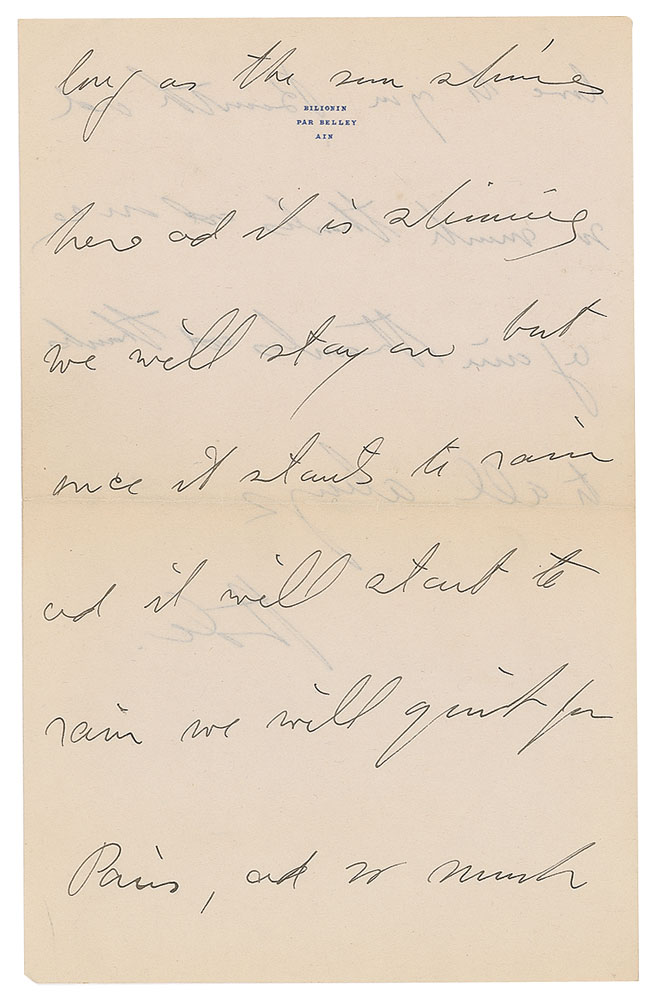 long as the sun shines
BILIGNIN
PAR BELLEY
AIN
here and it is shining
we will stay on but
once it starts to rain
and it will start to
rain we will quit for
Paris, and so much